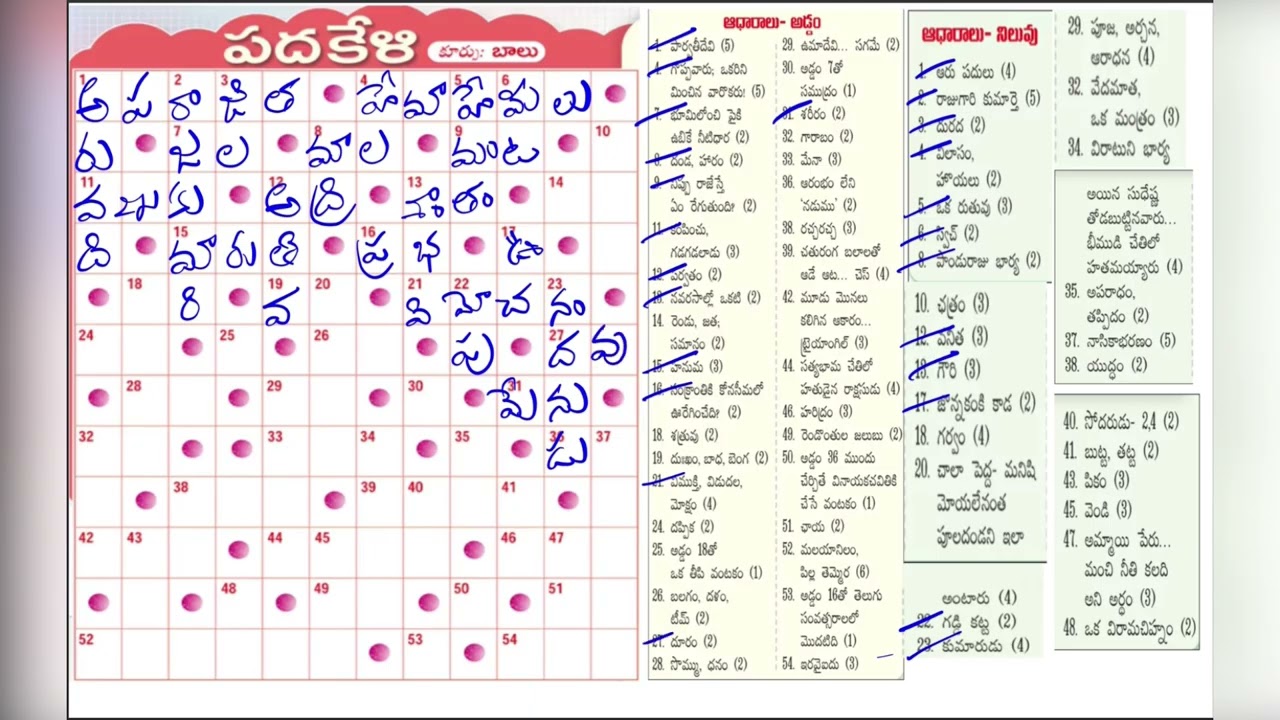 పదకేళి
కూర్పు: బాలు
1 2 3 4 5 6
అ ప రా జి త హే మా హే మీ లు
7 8 9 10
రు జ ల మా ల మం ట
11 12 13 14
వ ణు కు అ ద్రి శాం తం
15 16 17
ది మా రు తి ప్ర భ ఊ
18 19 20 21 22 23
రి వ వి మో చ నం
24 25 26 27
పు ద వు
28 29 30 31
మే ను
32 33 34 35 36 37
డు
38 39 40 41
42 43 44 45 46 47
48 49 50 51
52 53 54
ఆధారాలు- అడ్డం
1. పార్వతీదేవి (5)
4. గొప్పవారు; ఒకరిని
మించిన వారొకరు! (5)
7. భూమిలోంచి పైకి
ఉబికే నీటిధార (2)
8. దండ, హారం (2)
9. నిప్పు రాజేస్తే
ఏం రేగుతుంది! (2)
11. కంపించు,
గడగడలాడు (3)
12. పర్వతం (2)
13. నవరసాల్లో ఒకటి (2)
14. రెండు, జత;
సమానం (2)
15. హనుమ (3)
16. సంక్రాంతికి కోనసీమలో
ఊరేగించేది! (2)
18. శత్రువు (2)
19. దుఃఖం, బాధ, బెంగ (2)
21. విముక్తి, విడుదల,
మోక్షం (4)
24. దప్పిక (2)
25. అడ్డం 18తో
ఒక తీపి వంటకం (1)
26. బలగం, దళం,
టీమ్ (2)
27. దూరం (2)
28. సొమ్ము, ధనం (2)
29. ఉమాదేవి... సగమే (2)
30. అడ్డం 7తో
సముద్రం (1)
31. శరీరం (2)
32. గారాబం (2)
33. మేనా (3)
36. ఆరంభం లేని
'నడుము' (2)
38. రచ్చరచ్చ (3)
39. చతురంగ బలాలతో
ఆడే ఆట... చెస్ (4)
42. మూడు మొనలు
కలిగిన ఆకారం...
ట్రైయాంగిల్ (3)
44. సత్యభామ చేతిలో
హతుడైన రాక్షసుడు (4)
46. హరిద్రం (3)
49. రెండొంతుల జలుబు (2)
50. అడ్డం 36 ముందు
చేర్చితే వినాయకచవితికి
చేసే వంటకం (1)
51. ఛాయ (2)
52. మలయానిలం,
పిల్ల తెమ్మెర (6)
53. అడ్డం 16తో తెలుగు
సంవత్సరాలలో
మొదటిది (1)
54. ఇరవైఐదు (3)
ఆధారాలు- నిలువు
1. ఆరు పదులు (4)
2. రాజుగారి కుమార్తె (5)
3. దురద (2)
4. విలాసం,
హొయలు (2)
5. ఒక రుతువు (3)
6. స్విచ్ (2)
8. పాండురాజు భార్య (2)
10. ఛత్రం (3)
12. వనిత (3)
13. గౌరి (3)
17. జొన్నకంకి కాడ (2)
18. గర్వం (4)
20. చాలా పెద్ద- మనిషి
మోయలేనంత
పూలదండని ఇలా
అంటారు (4)
22. గడ్డి కట్ట (2)
23. కుమారుడు (4)
29. పూజ, అర్చన,
ఆరాధన (4)
32. వేదమాత,
ఒక మంత్రం (3)
34. విరాటుని భార్య
అయిన సుధేష్ణ
తోడబుట్టినవారు...
భీముడి చేతిలో
హతమయ్యారు (4)
35. అపరాధం,
తప్పిదం (2)
37. నాసికాభరణం (5)
38. యుద్ధం (2)
40. సోదరుడు- 2,4 (2)
41. బుట్ట, తట్ట (2)
43. పికం (3)
45. వెండి (3)
47. అమ్మాయి పేరు...
మంచి నీతి కలది
అని అర్థం (3)
48. ఒక విరామచిహ్నం (2)